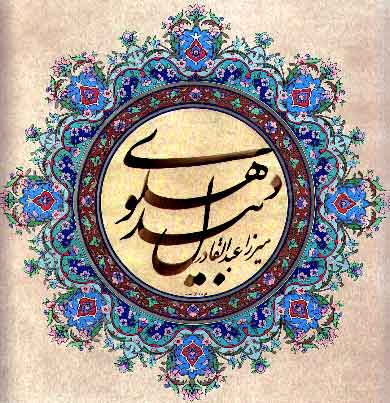 میرزا عبدالقادر
بیدل دهلوی